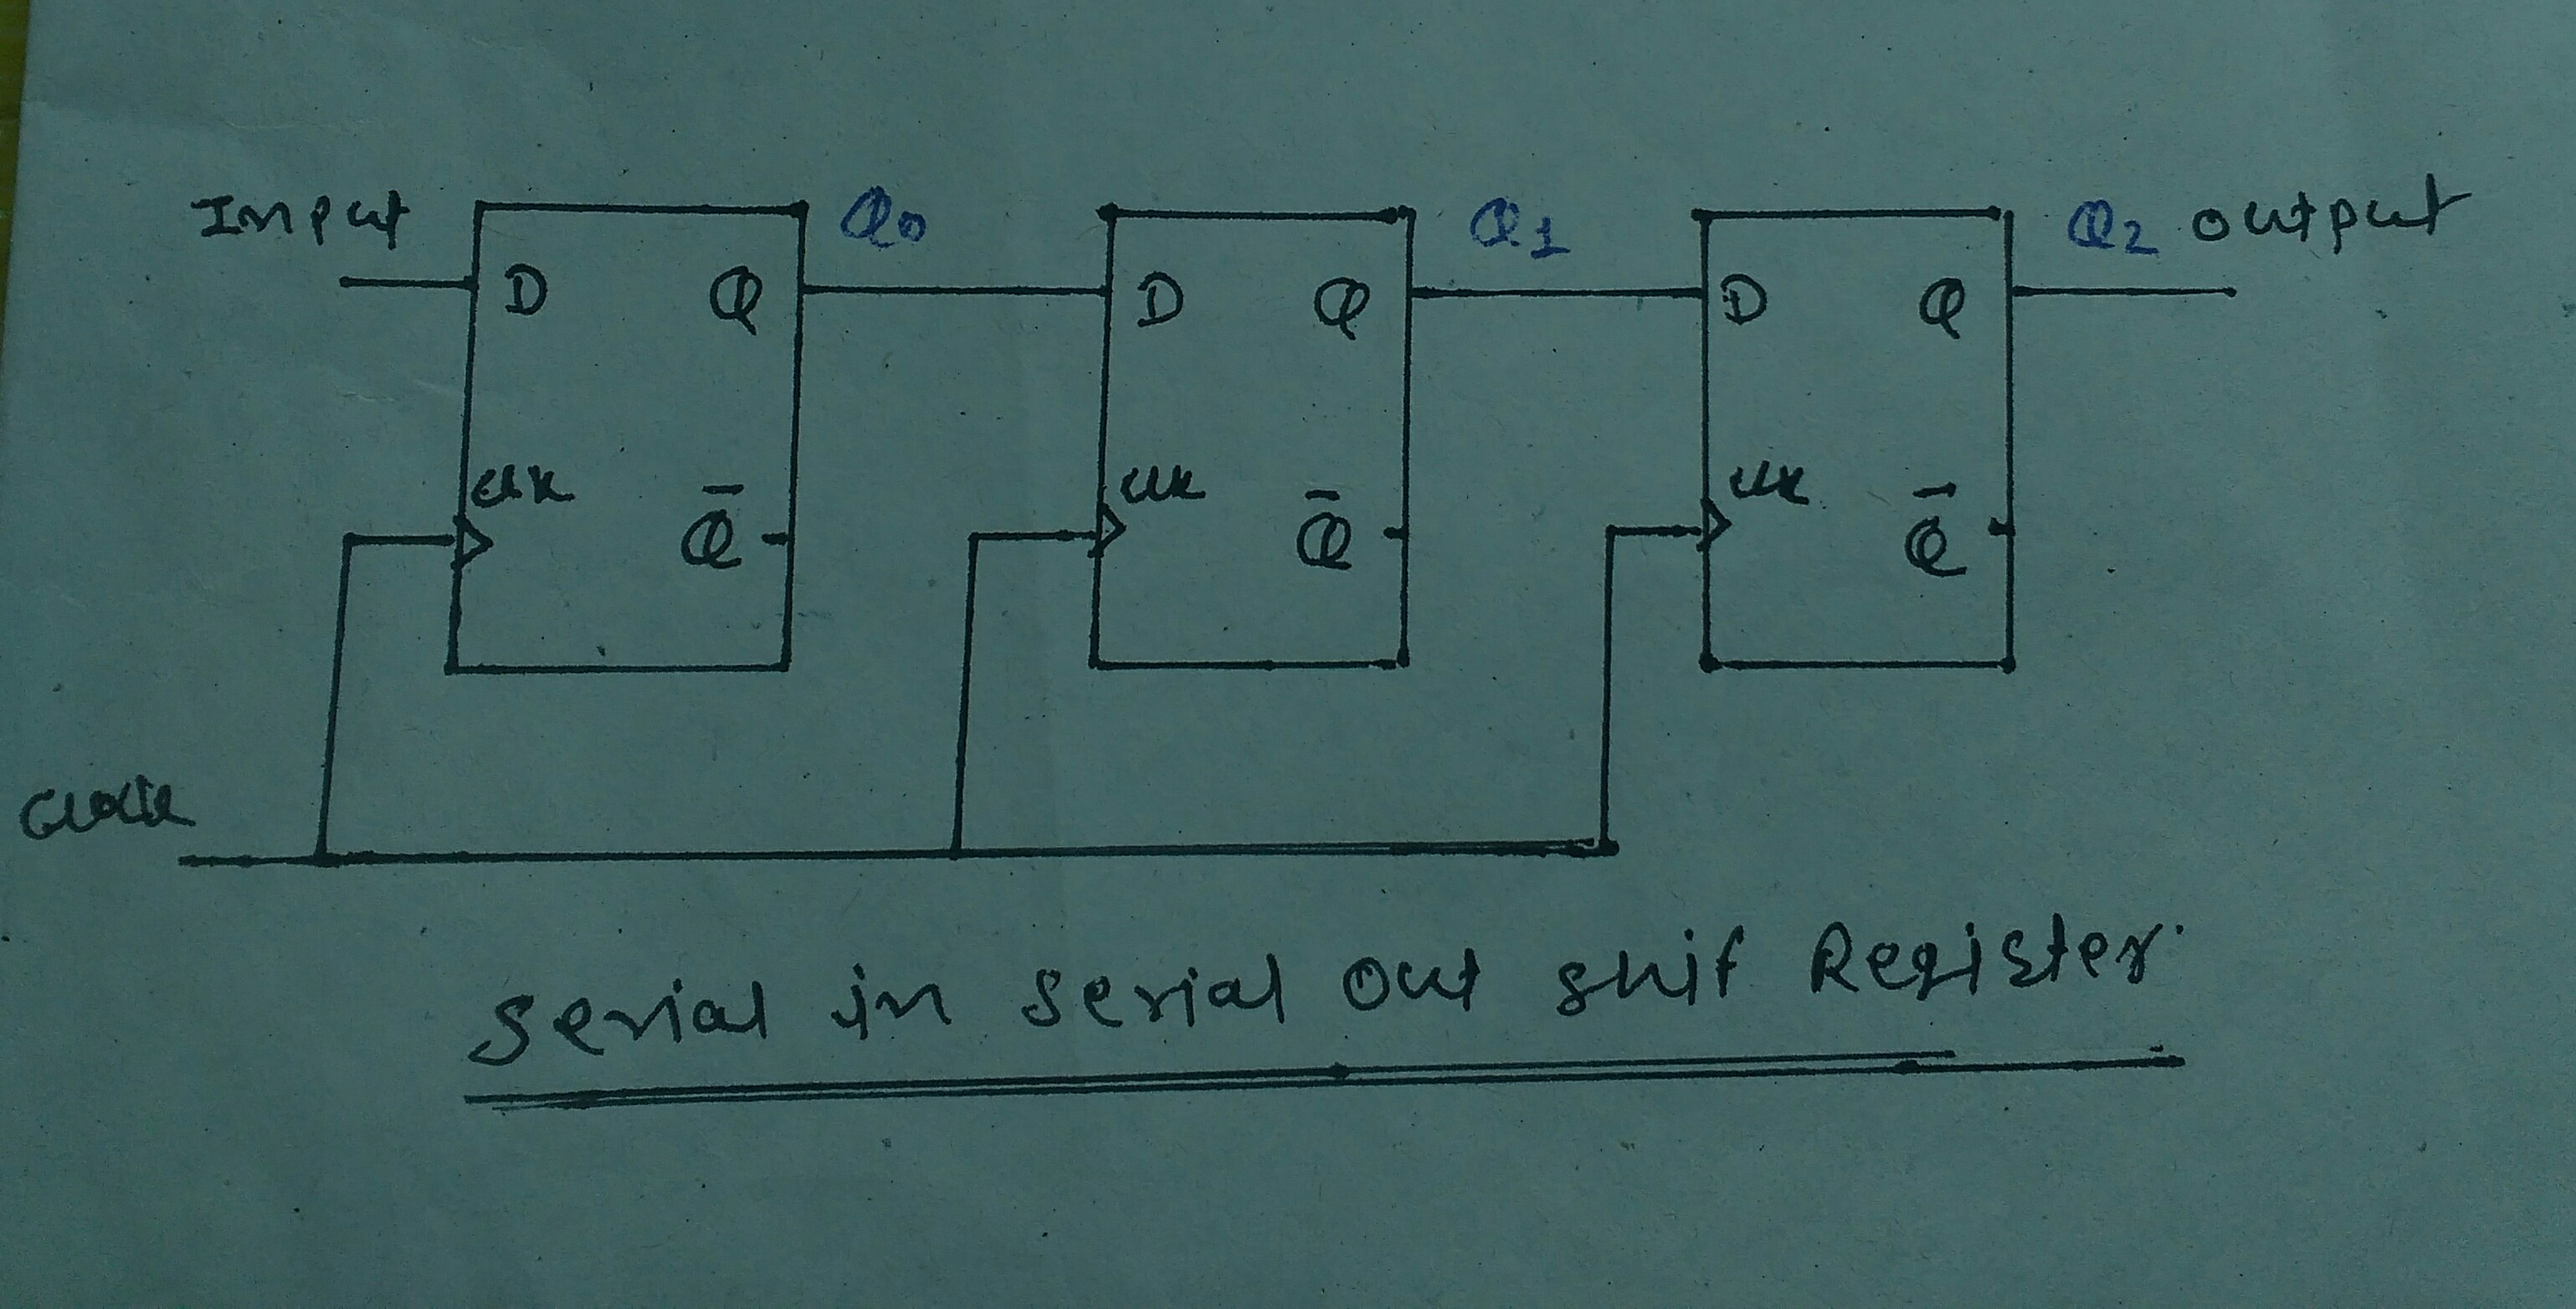 Input Q0 Q1 Q2 output
D Q D Q D Q
CLK CLK CLK
Q̅ Q̅ Q̅
Clock
serial in serial out shif Register.